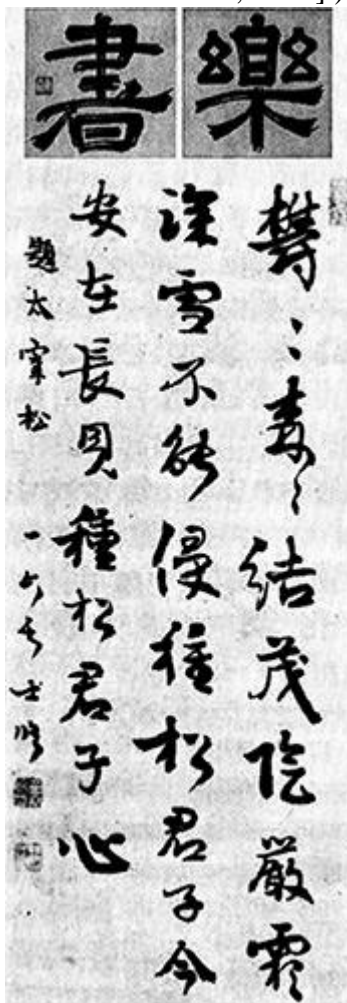 樂書
鬱〻〻結茂陰嚴霜
深雪不能侵種松君子今
安在長見種松君子心
題太宰松 一六居士修